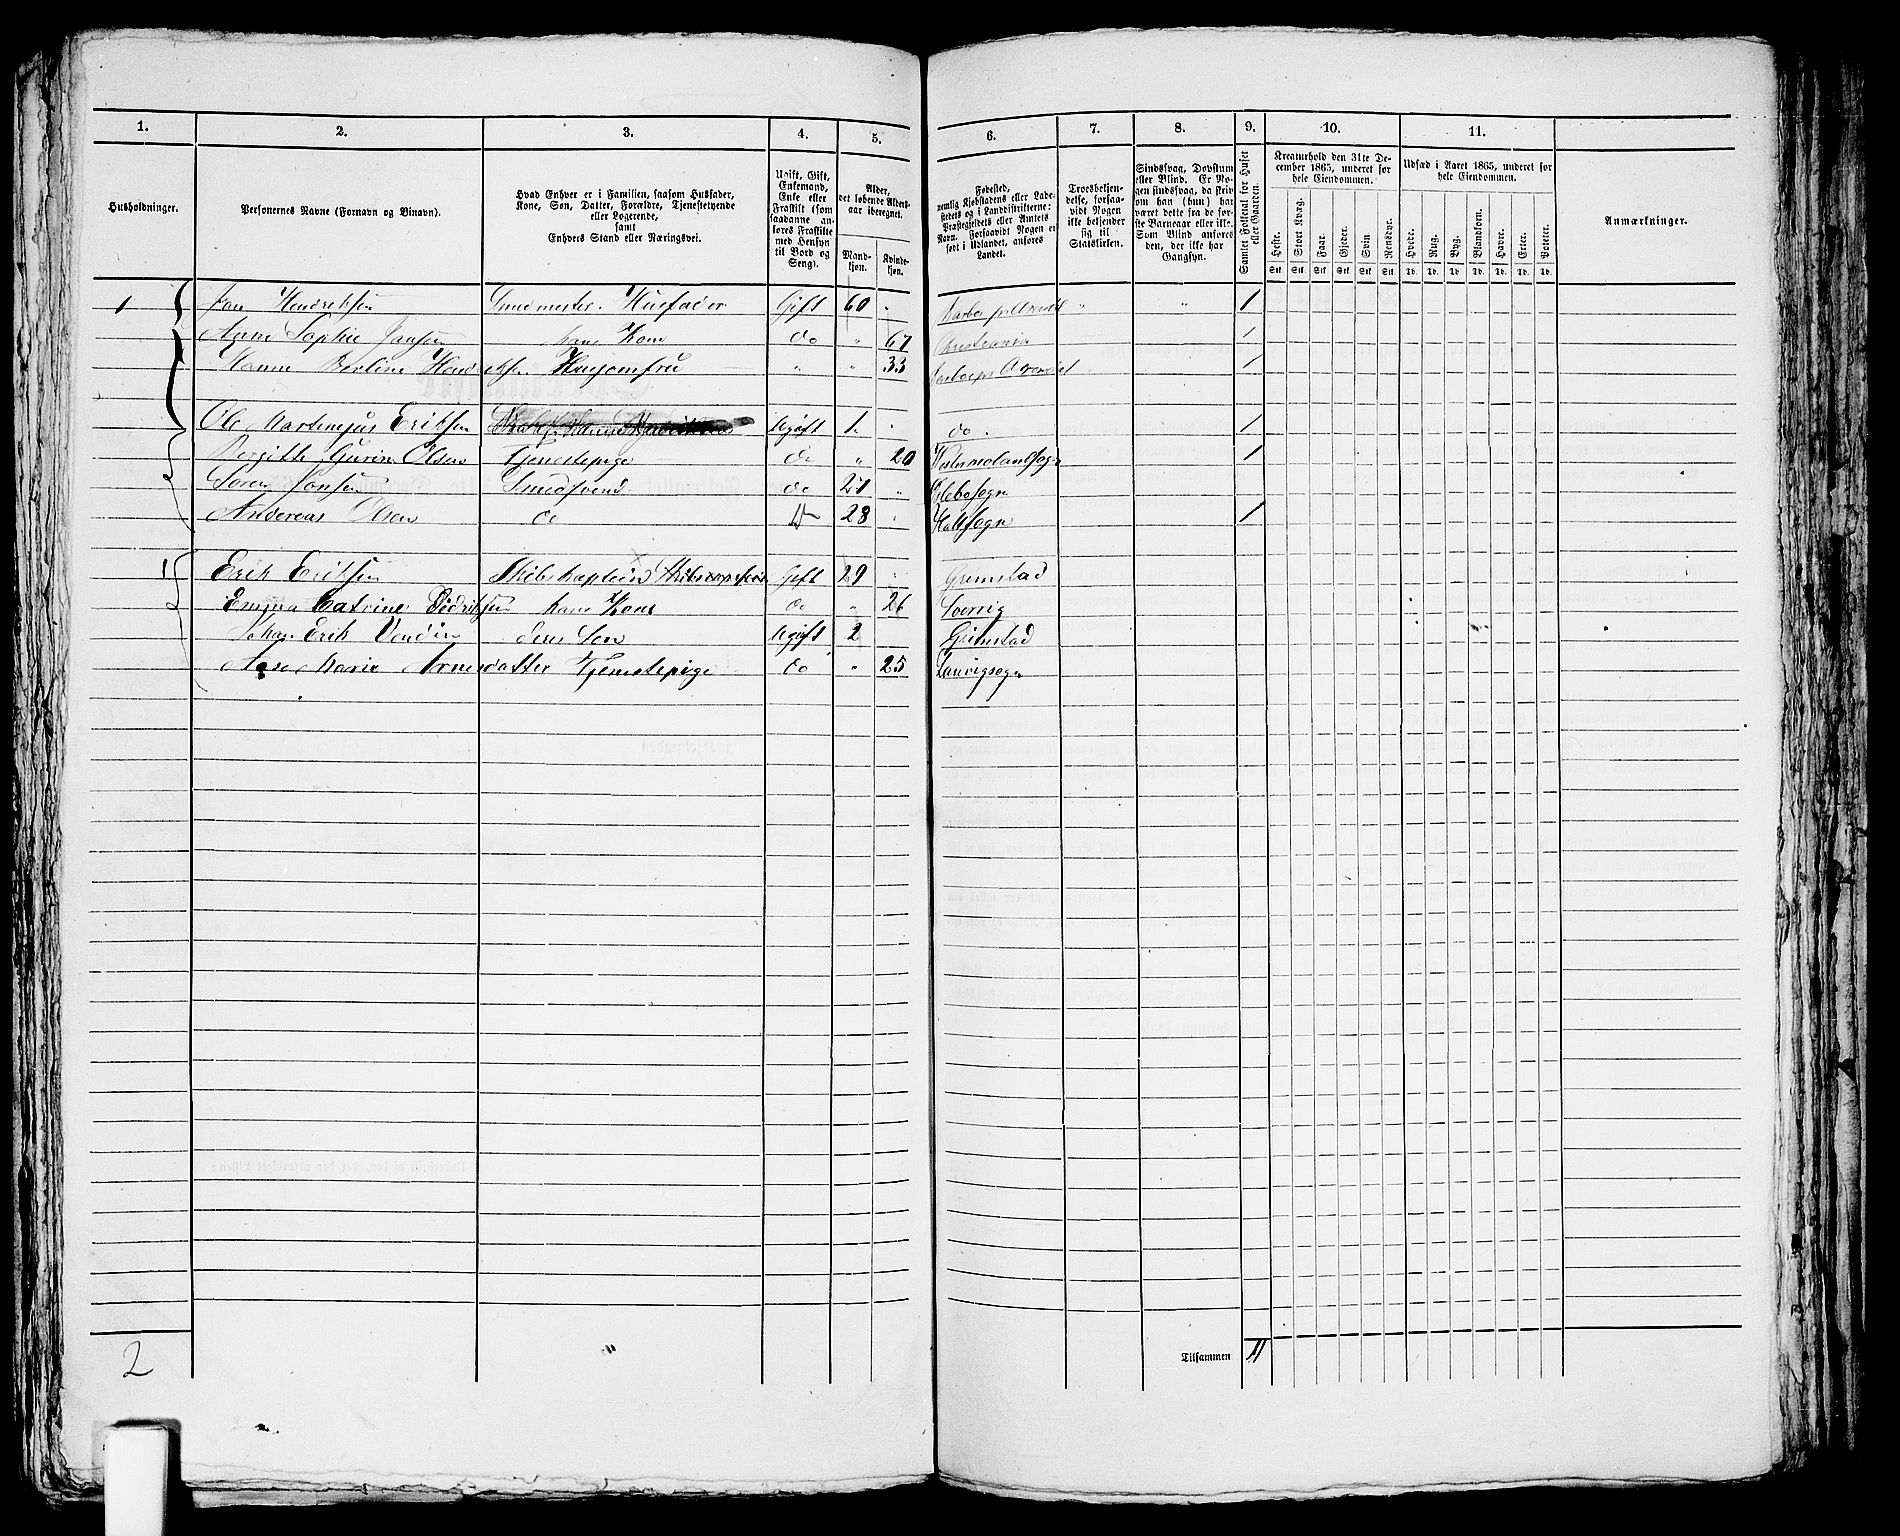 1. 2. 3. 4. 5. 6. 7. 8. 9. 10. 11.
Husholdninger.
Personernes Navne (Fornavn og Binavn).
Hvad Enhver er i Familien, saasom Husfader,
Kone, Søn, Datter, Forældre, Tjenestetyende
eller Logerende,
samt
Enhvers Stand eller Næringsvei.
Ugift, Gift,
Enkemand,
Enke eller
Fraskilt (som
saadanne an-
føres Fraskilte
med Hensyn
til Bord og
Seng).
Alder,
det løbende Alders-
aar iberegnet.
Mand-
kjøn.
Kvinde-
kjøn.
Fødested,
nemlig Kjøbstadens eller Lade-
stedets og i Landdistrikterne:
Præstegjeldets eller Amtets
Navn. Forsaavidt Nogen er
født i Udlandet, anføres
Landet.
Troesbekjen-
delse, forsaa-
vidt Nogen
ikke bekjender
sig til
Statskirken.
Sindssvag, Døvstum
eller Blind. Er No-
gen sindssvag, da skriv
om han (hun) har
været dette fra de før-
ste Barneaar eller ikke.
Som Blind anføres
den, der ikke har
Gangsyn.
Samlet Folketal for Huset
eller Gaarden.
Kreaturhold den 31te De-
cember 1865, underet for
hele Eiendommen.
Heste. Stort Kvæg. Faar. Gjeder. Svin. Rensdyr.
Stk. Stk. Stk. Stk. Stk. Stk.
Udsæd i Aaret 1865, underet for
hele Eiendommen.
Hvede. Rug. Byg. Blandkorn. Havre. Erter. Poteter.
Td. Td. Td. Td. Td. Td. Td.
Anmærkninger.
1 Jon Hendriksen Smedmester. Husfader Gift 60 " " " 1
Anne Sophie Jansen hans Kone do " 67 Christiania 1
Hanne Berline Hendriksen Husjomfru " " 33 Arendal 1
Ole Martinejus Eriksen Ugift 1 " do. 1
Bergitte Gurine Olsen Tjenestepige do " 20 1
Søren Jonsen Smedsvend do 21 "
Andereas Olsen do 28 " Holtsogn 1
1 Erik Eriksen Skibskaptein Gift 29 " Grimstad
Emma Catrine Didriksen hans Kone do " 26 Sverrig
Johan Erik deres Søn Ugift 2 Grimstad
Aase Marie Arnesdatter Tjenestepige do " 25 Laurvigsogn
2
Tilsammen 11